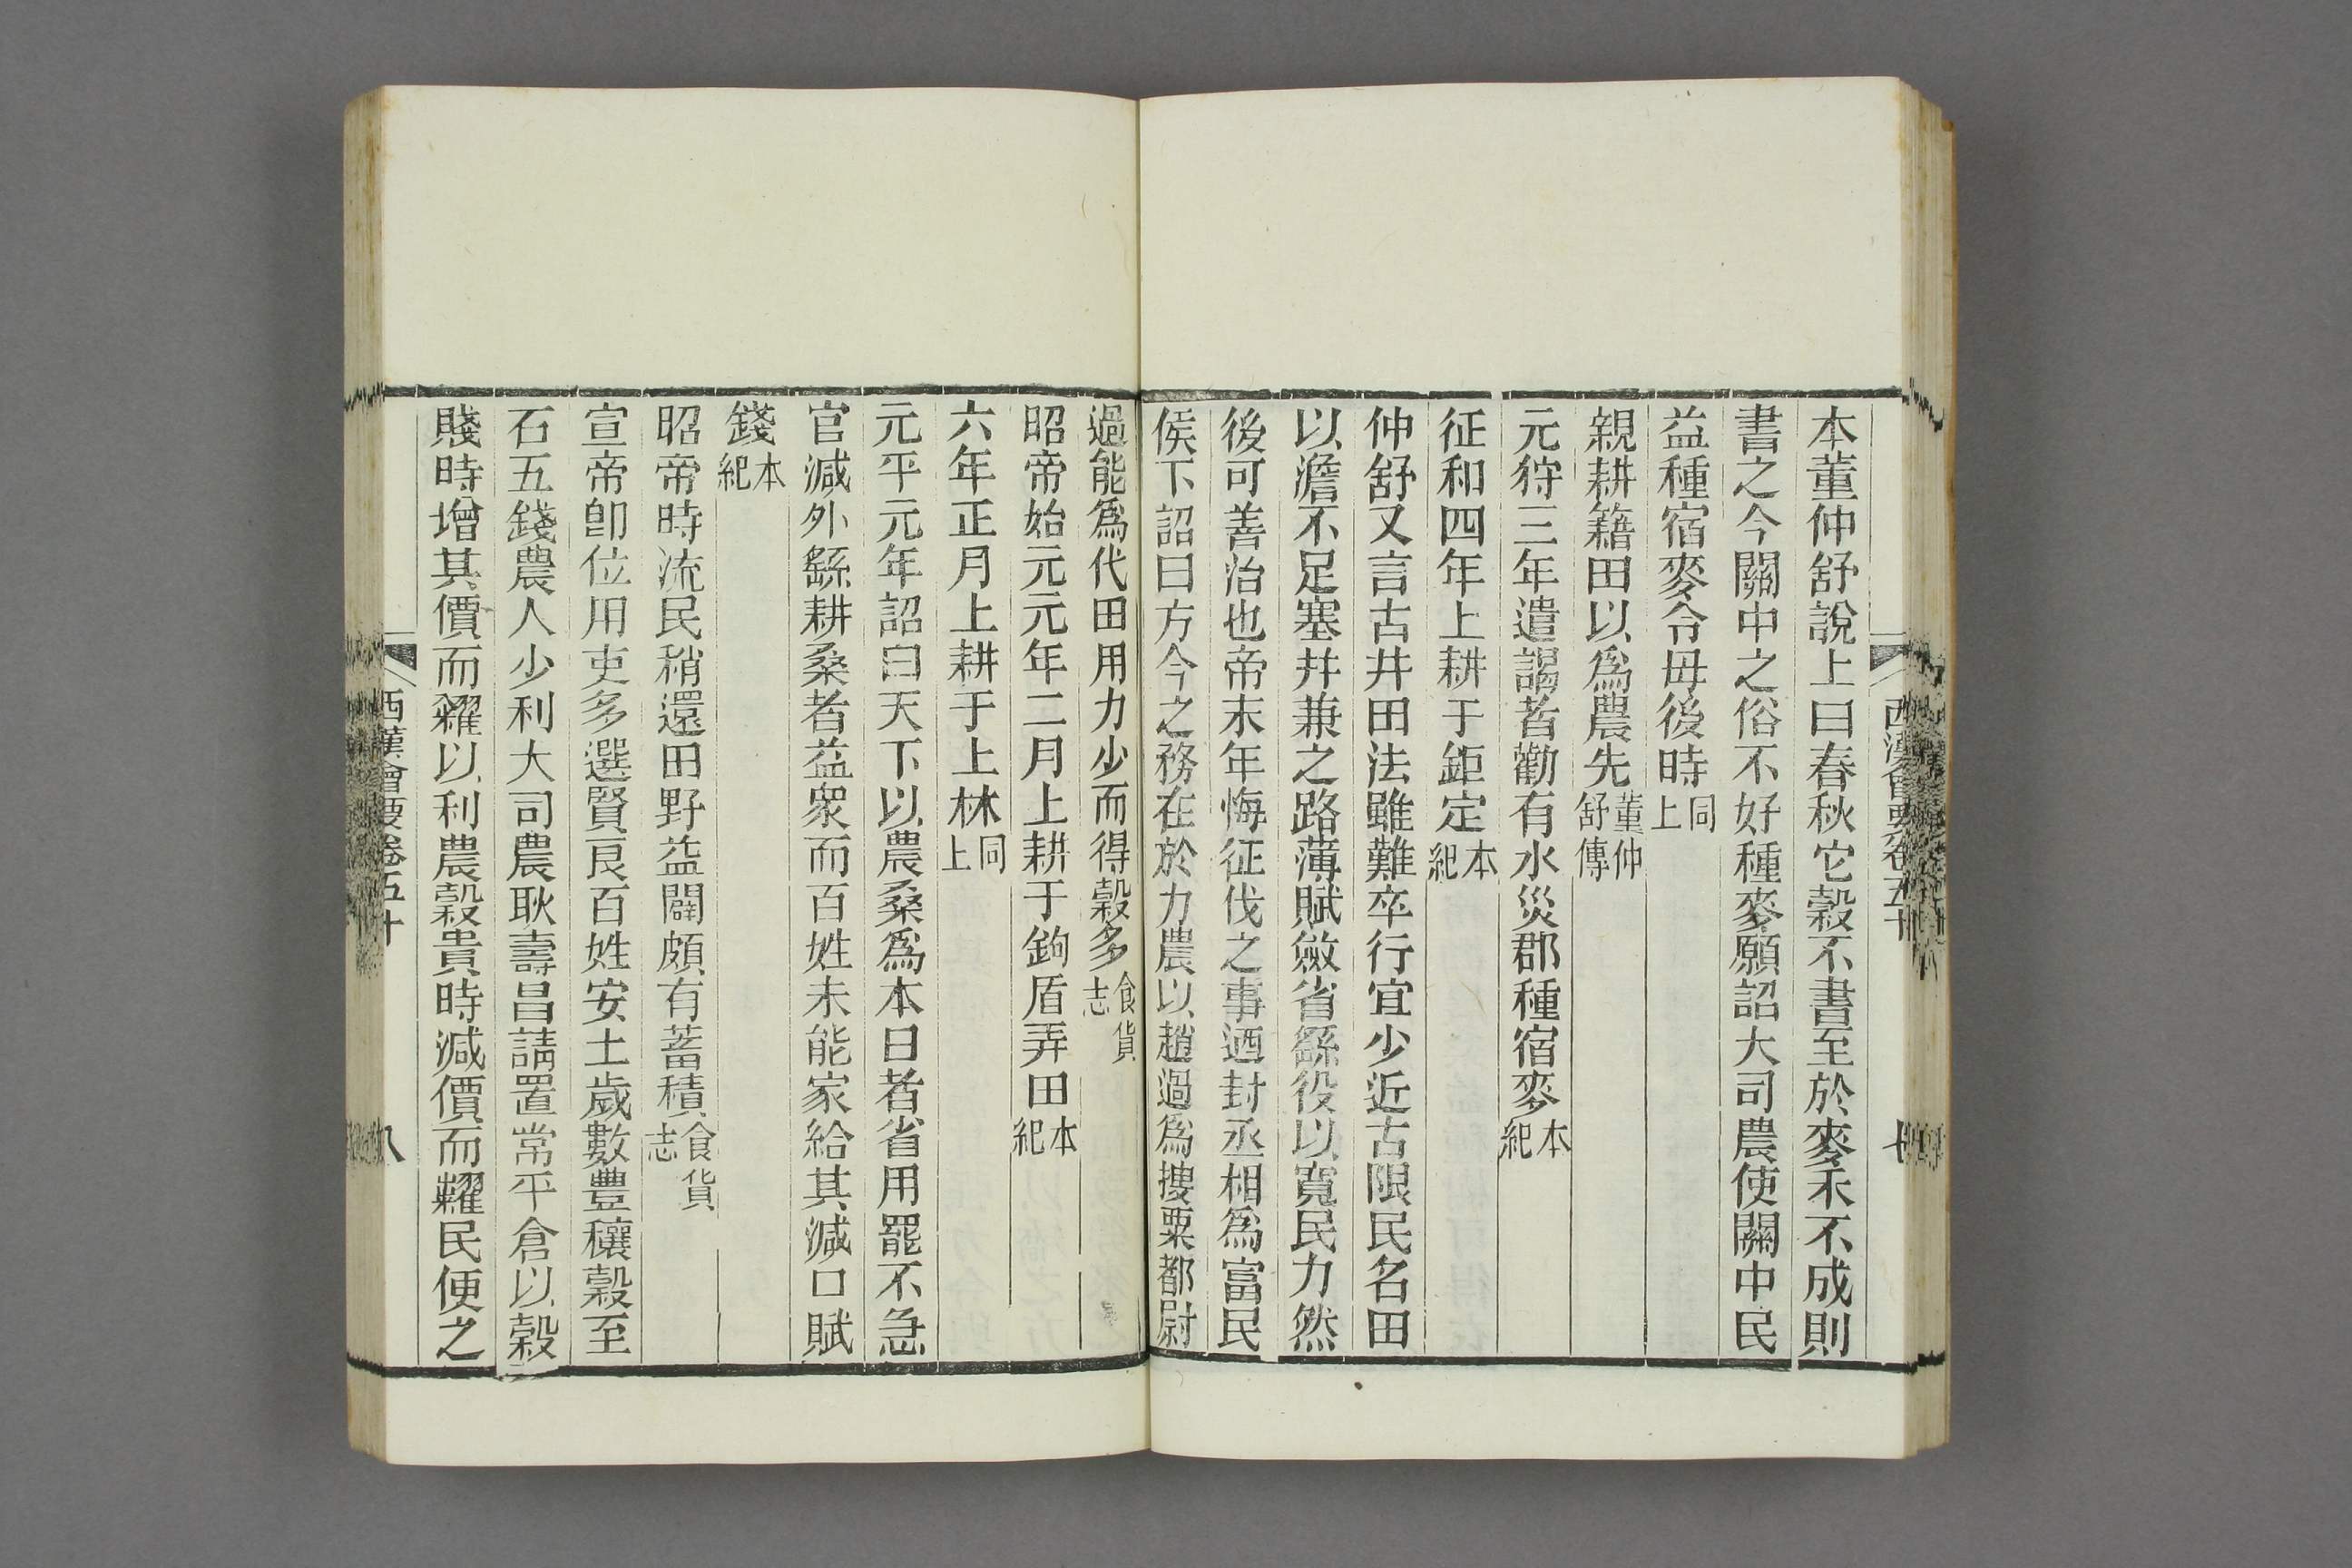 本董仲舒說上曰春秋它穀不書至於麥禾不成則
書之今關中之俗不好種麥願詔大司農使關中民
益種宿麥令毋後時同上
親耕籍田以爲農先董仲舒傳
元狩三年遣謁者勸有水災郡種宿麥本紀
征和四年上耕于鉅定本紀
仲舒又言古井田法雖難卒行宜少近古限民名田
以澹不足塞并兼之路薄賦斂省繇役以寬民力然
後可善治也帝末年悔征伐之事迺封丞相爲富民
侯下詔曰方今之務在於力農以趙過爲搜粟都尉
過能爲代田用力少而得穀多食貨志
昭帝始元元年二月上耕于鉤盾弄田本紀
六年正月上耕于上林同上
元平元年詔曰天下以農桑爲本日者省用罷不急
官減外繇耕桑者益衆而百姓未能家給其減口賦
錢本紀
昭帝時流民稍還田野益闢頗有蓄積食貨志
宣帝卽位用吏多選賢良百姓安土歲數豐穰穀至
石五錢農人少利大司農耿壽昌請置常平倉以穀
賤時增其價而糴以利農穀貴時減價而糶民便之
西漢會要卷五十
八